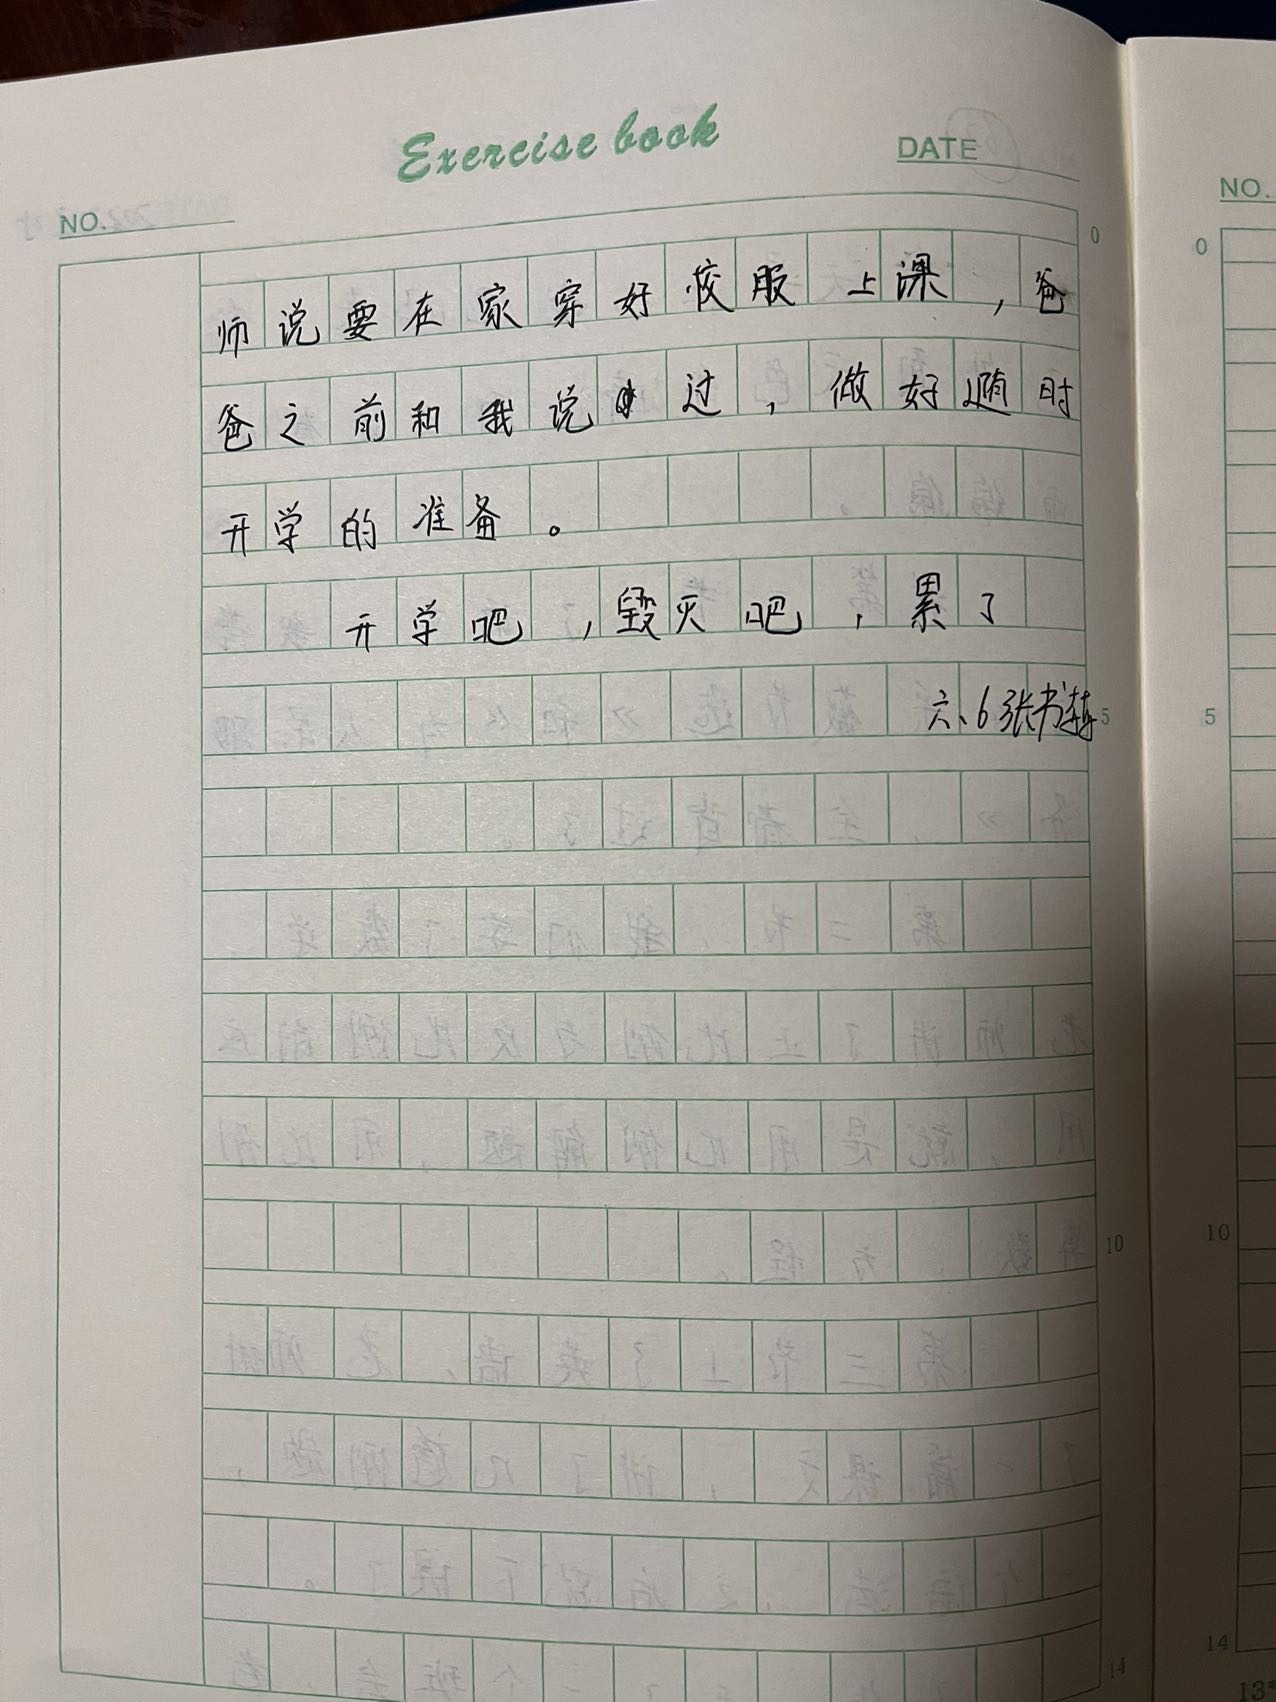 Exercise book
DATE
NO.
NO.
0
0
师说要在家穿好校服上课，爸
爸之前和我说过，做好随时
开学的准备。
开学吧，毁灭吧，累了
六、6张书
5
5
10
10
14
14